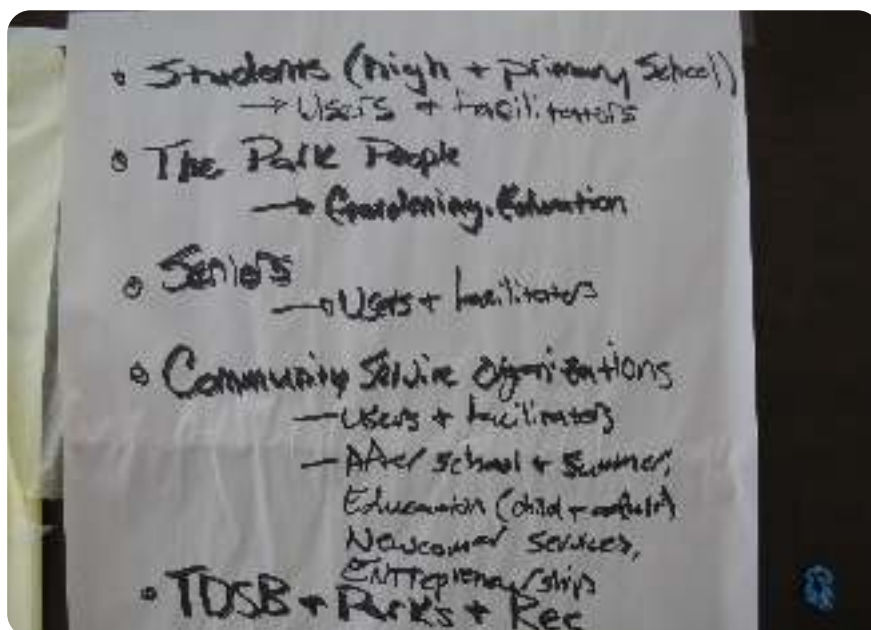 Students (high + primary School)
→ Users + facilitators
The Park People
→ Gardening, Education
Seniors
→ Users + facilitators
Community Service Organizations
— Users + facilitators
— After school + Summer,
Education (child + adult)
Newcomer Services,
Entrepreneurships
TDSB + Parks + Rec